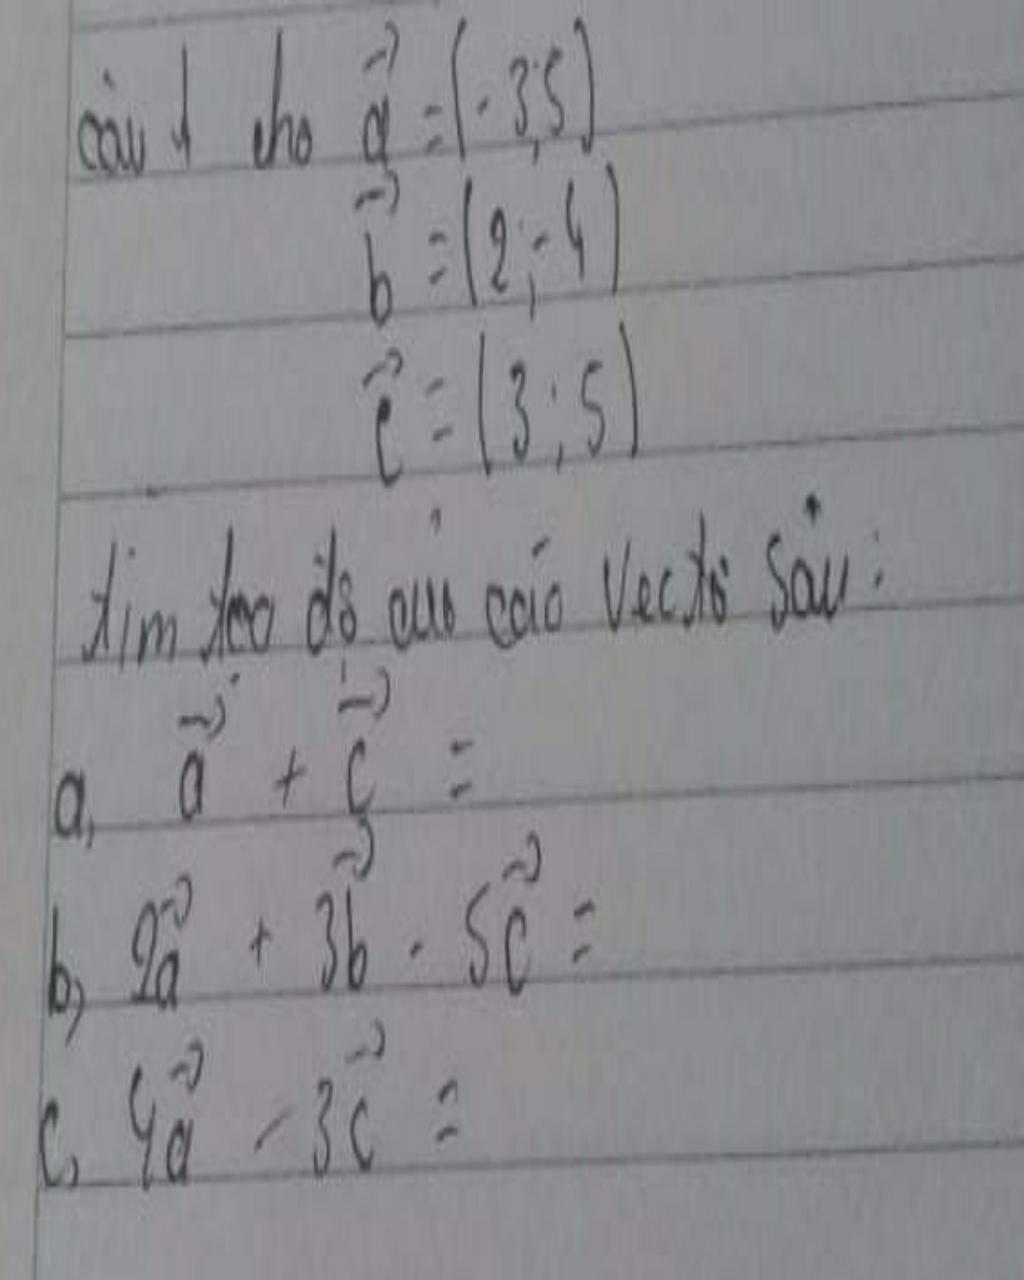 câu 1 cho a⃗ = (-3;5)
b⃗ = (2;-4)
c⃗ = (3;5)
tìm tọa độ của các vectơ sau:
a, a⃗ + c⃗ =
b, 2a⃗ + 3b⃗ - 5c⃗ =
c, 4a⃗ - 3c⃗ =